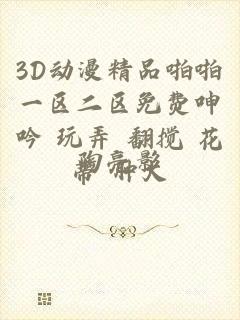 3D动漫精品啪啪
一区二区免费呻
吟 玩弄 翻搅 花
陶亮影